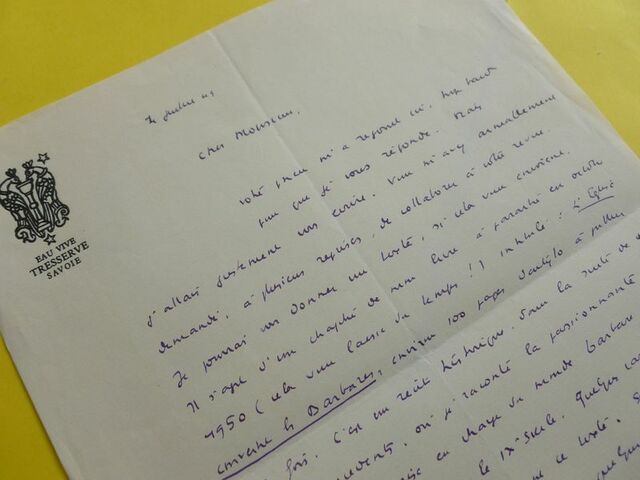 EAU VIVE
TRESSERVE
SAVOIE
Cher Monsieur,
Votre m'a rejoint ici,
pour que je vous réponde. Mais
j'allais justement vous écrire. Vous m'avez aimablement
demandé, à plusieurs reprises, de collaborer à votre revue.
Je pourrais vous donner un texte, si cela vous convient.
Il s'agit d'un chapitre de mon livre à paraître en octobre
1950 (cela vous laisse du temps !) intitulé : L'Eglise
convertit les Barbares, environ 100 pages
fois. C'est un récit historique. Dans la suite de
où je raconte la passionnante
en charge du monde barbare
le IXe siècle. Quelques
ce texte.